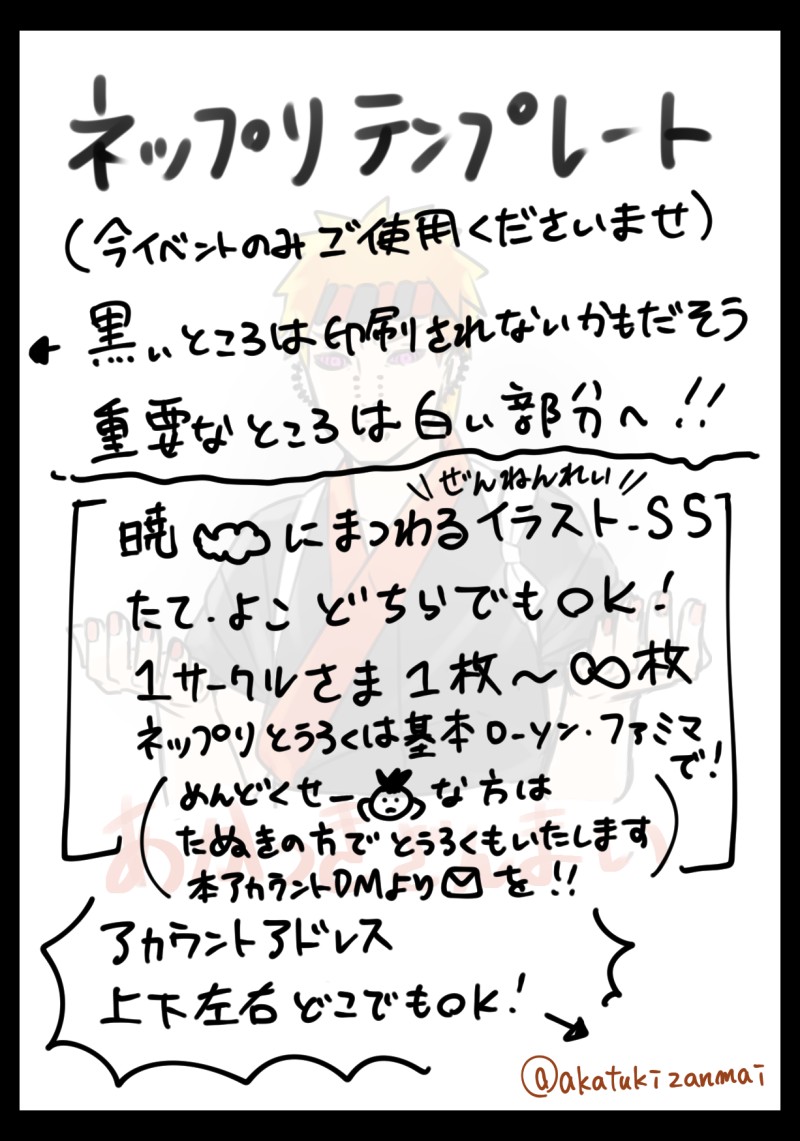 ネップリテンプレート
(今イベントのみご使用くださいませ)
黒いところは印刷されないかもだそう
重要なところは白い部分へ!!
\\ぜんねんれい//
暁にまつわるイラスト・SS
たて・よこどちらでもOK!
1サークルさま1枚〜∞枚
ネップリとうろくは基本ローソン・ファミマで!
(めんどくせーな方は
たぬきの方でとうろくもいたします
本アカウントDMより を!!)
アカウントアドレス
上下左右どこでもOK!
@akatukizanmai
あかつきざんまい